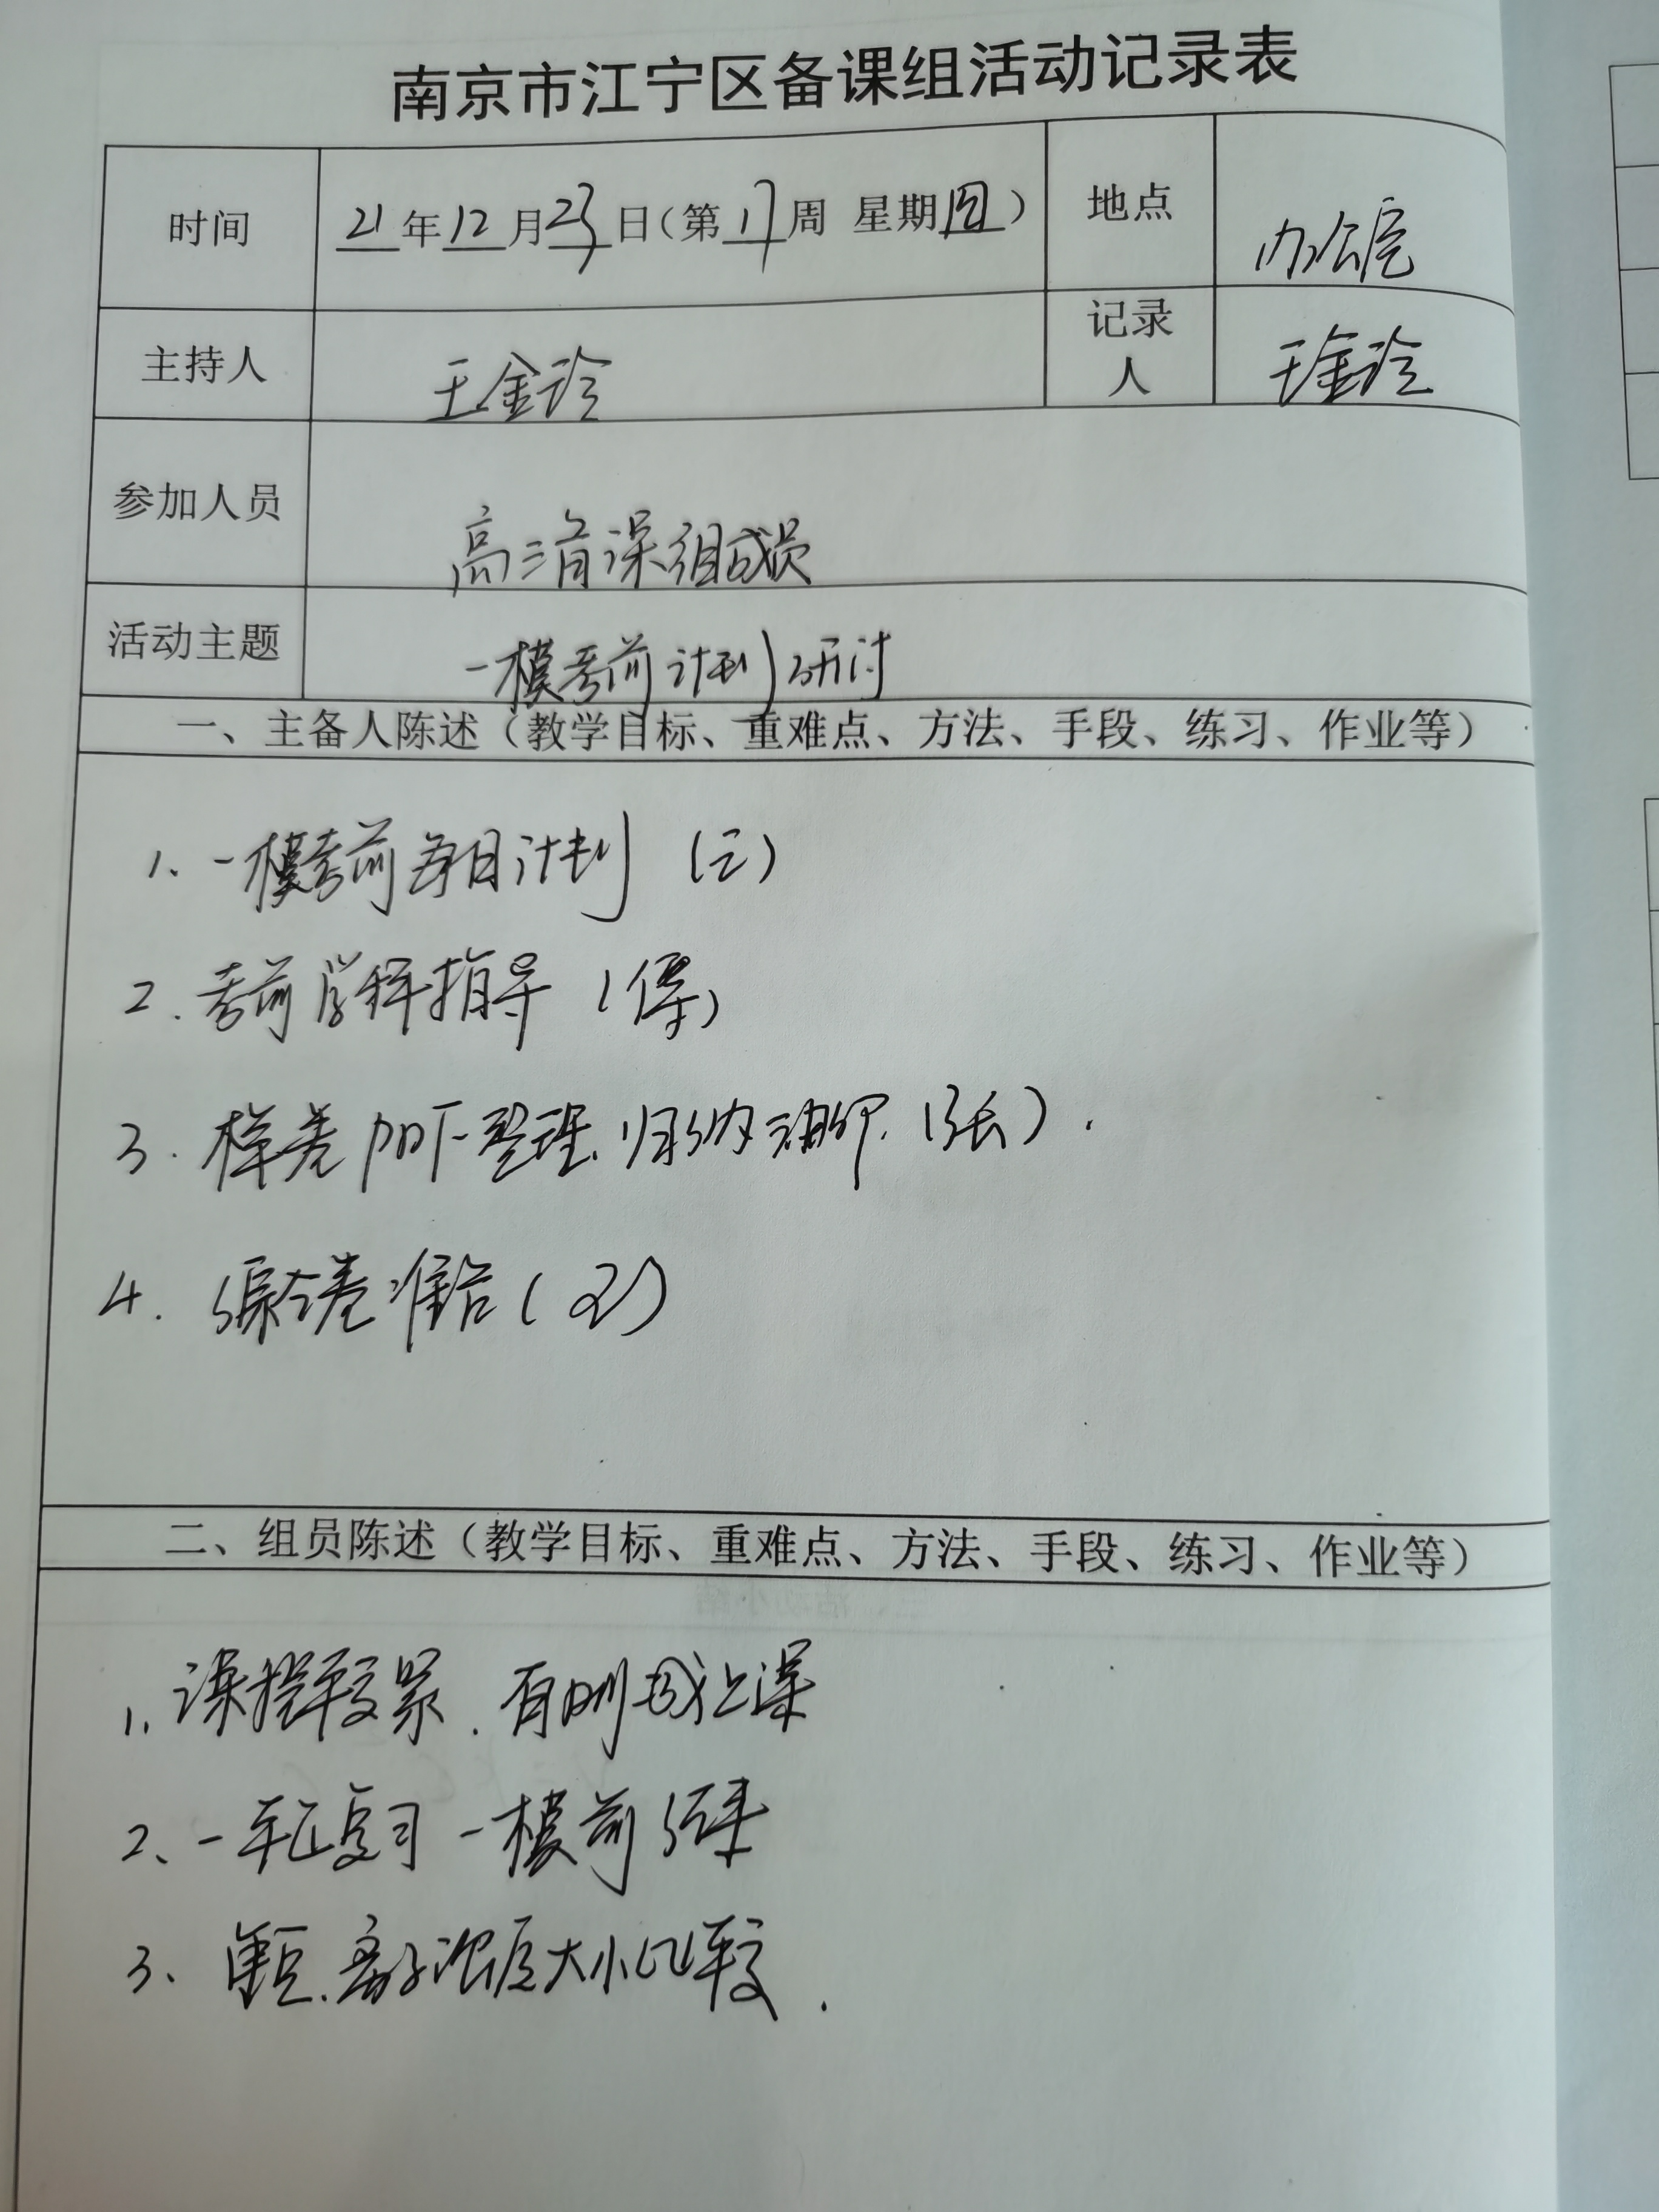 南京市江宁区备课组活动记录表
时间 21年12月23日(第17周 星期四) 地点 办公室
主持人 王金玲 记录人 王金玲
参加人员 高三备课组成员
活动主题 一模考前计划研讨
一、主备人陈述(教学目标、重难点、方法、手段、练习、作业等)
1、一模考前每日计划(王)
2.考前学科指导(傅)
3.样卷 整理.归纳 (张).
4.综合卷准备()
二、组员陈述(教学目标、重难点、方法、手段、练习、作业等)
1、课提较紧.有时 上课
2、一轮复习一模前结束
3、重点.离子浓度大小比较.